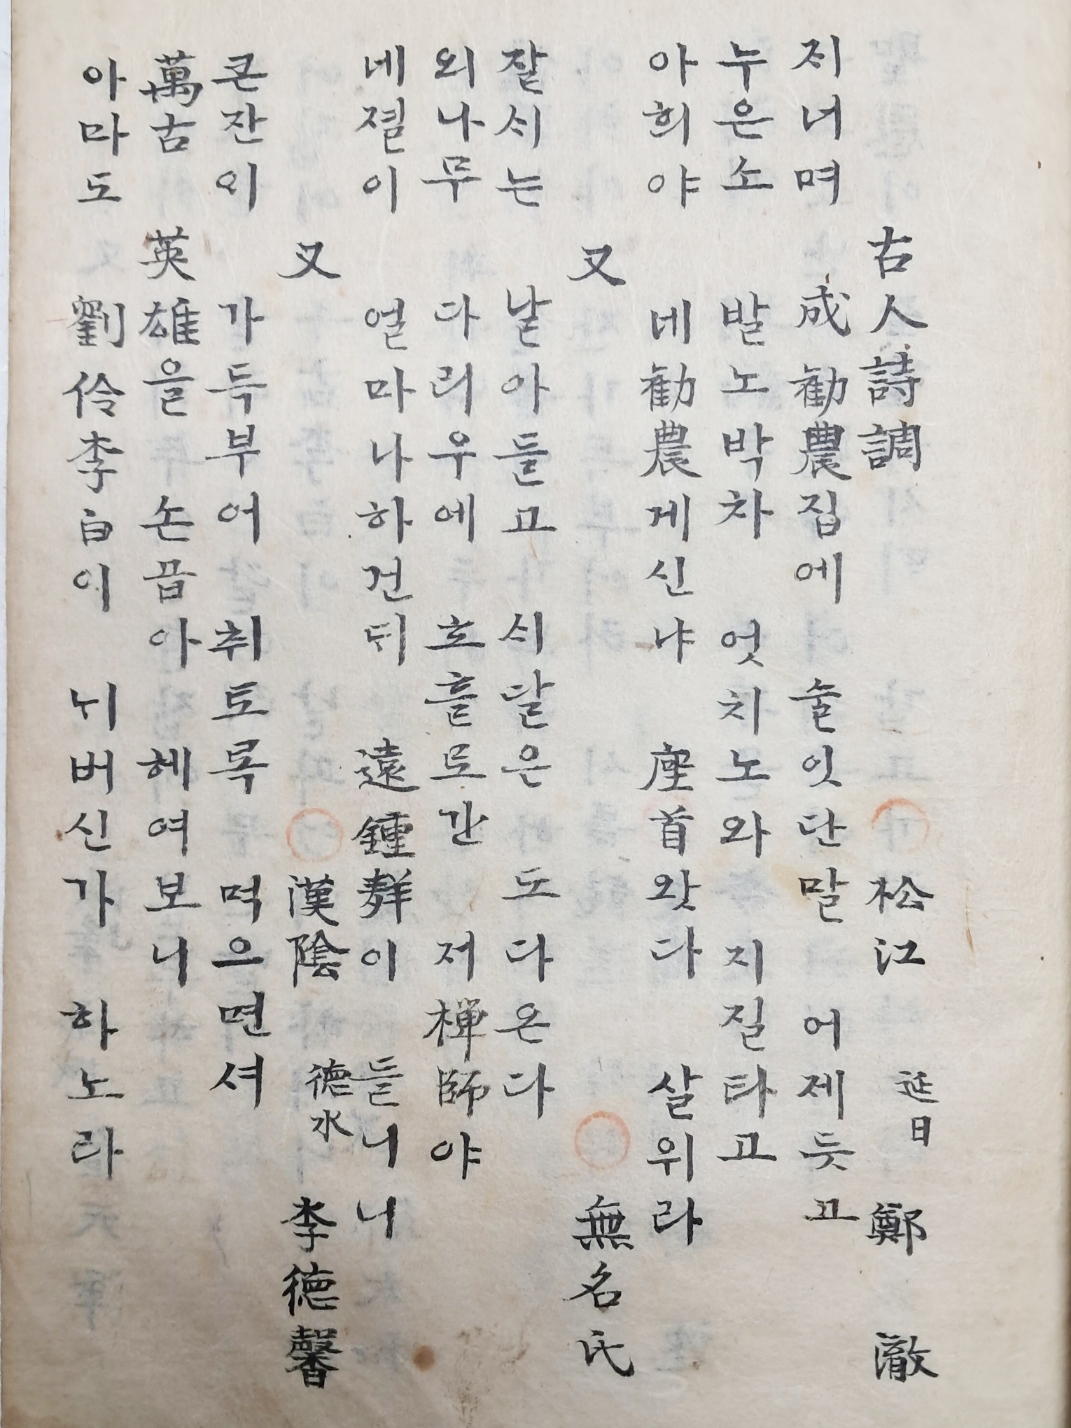 古人詩調 松江 延日 鄭 澈
ᄌᆡ너며 成勸農집에 술잇단말 어제듯고
누은소 발노박차 엇치노와 지질타고
아희야 네勸農게신냐 座首왓다 살위라
又 無名氏
잘ᄉᆡ는 날아들고 ᄉᆡ달은 도다온다
외나무 다리우에 호흘로간 저禪師야
네졀이 얼마나하건ᄃᆡ 遠鍾聲이 들니니
又 漢陰 德水 李德馨
큰잔ᄋᆡ 가득부어 취토록 먹으면셔
萬古 英雄을 손곱아 혜여보니
아마도 劉伶李白이 뉘버신가 하노라